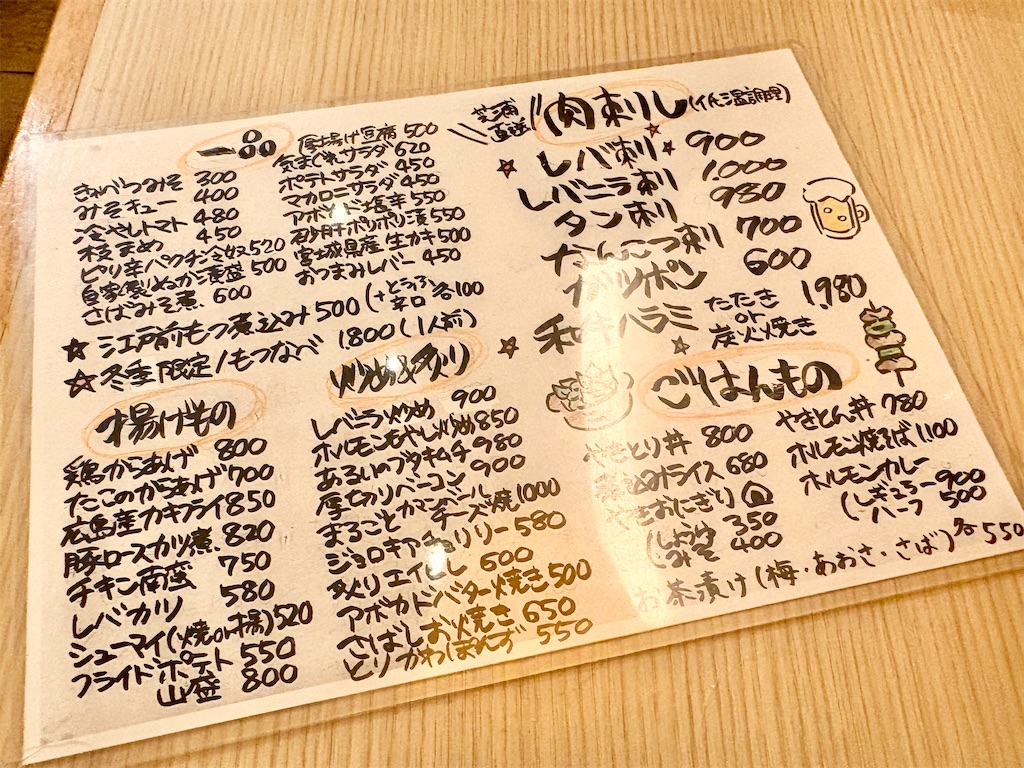 一品
きゃべつみそ 300
みそキュー 400
冷やしトマト 480
枝まめ 450
ピリ辛パクチー冷奴 520
自家製ぬか漬盛 500
さばみそ煮 600
厚揚げ豆腐 500
気まぐれサラダ 620
ポテトサラダ 450
マカロニサラダ 450
アボカド塩辛 550
砂肝ポリポリ漬 550
宮城県産生カキ 500
おつまみレバー 450
☆江戸前もつ煮込み 500 (+とうふ 辛口 各100
☆冬季限定!もつなべ 1800(1人前)
揚げもの
鶏からあげ 800
たこのからあげ 700
広島産カキフライ 850
豚ロースカツ煮 820
チキン南蛮 750
レバカツ 580
シューマイ(焼or揚) 520
フライドポテト 550
山盛 800
炒め&炙り
レバニラ炒め 900
ホルモンもやし炒め 850
あるいのブタキムチ 980
厚切りベーコン 900
まるごとカマンベール
チーズ焼 1000
ジョロキアチョリソー 580
炙りエイヒレ 600
アボカドバター焼き 500
さばしお焼き 650
とりかわぽんず 550
芝浦直送 肉刺し(低温調理)
☆レバ刺☆ 900
レバニラ刺 1.000
タン刺 980
なんこつ刺 700
ガツポン 600
☆和牛ハラミ たたき or 炭火焼き 1980
ごはんもの
やきとり丼 800
煮込みライス 680
やきおにぎり
(しょうゆ 350
みそ 400
やきとん丼 780
ホルモン焼そば 1100
ホルモンカレー
(レギュラー 900
ハーフ 500
お茶漬け(梅・あおさ・さば)各550